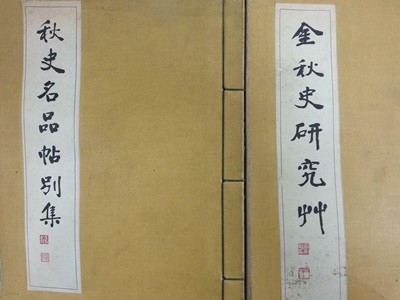 金秋史硏究艸
秋史名品帖別集